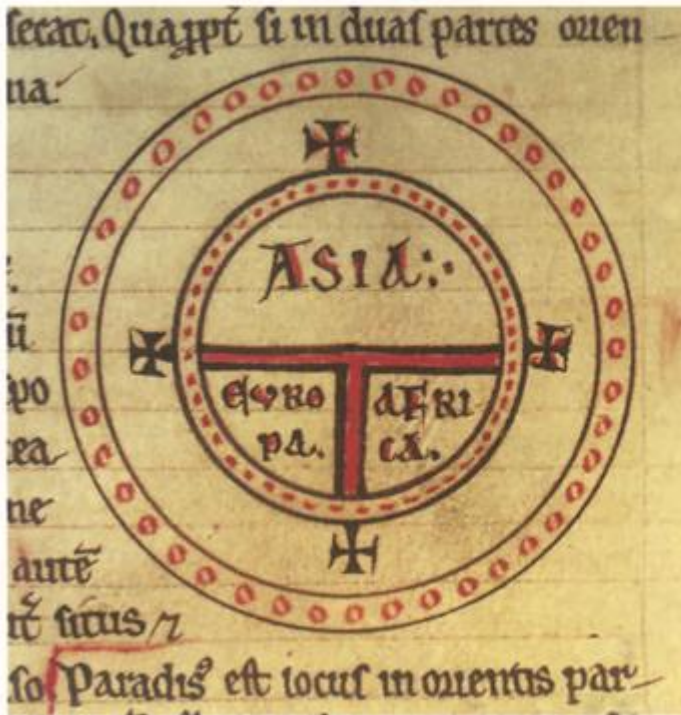 secat. Qua ppt̄ si in duas partes orien
na:
ASIA:·
EURO
PA.
AFRI
CA.
ū
spo
tea
ne
autē
nt̄ situs ⁊
so Paradisꝰ est locus in orientis par-